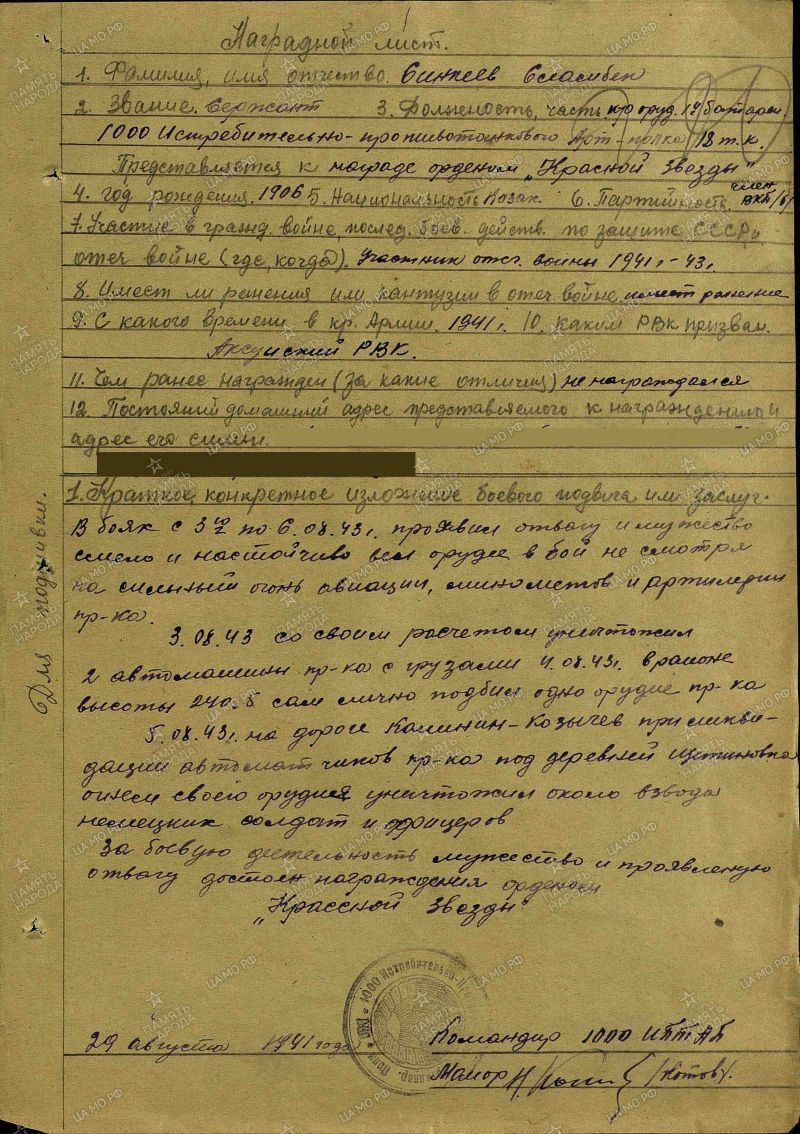 Наградной лист.
1. Фамилия, имя отчество. Синкеев Сласибек
2. Звание. Сержант 3. Должность, часть. к-р оруд. 1й батареи
1000 Истребительно-противотанкового Арт-полка 18 т.к.
Представляется к награде орденом „Красной Звезды"
4. год рождения. 1906 5. Национальность Козак 6. Партийность. член ВКП/б/
7. Участие в гражд. войне, послед. боев. действ. по защите СССР и
отеч войне (где, когда). Участник отеч. войны 1941г-43г.
8. Имеет ли ранения или контузии в отеч. войне, имеет ранение
9. С какого времени в кр. Армии. 1941г. 10. каким РВК призван.
Аксуйский РВК.
11. Чем ранее награжден (за какие отличия) не награждался
12. Постояний домашний адрес представляемого к награждению и
адрес его семьи.
1. Краткое, конкретное изложение боевого подвига или заслуг.
В боях с 3го по 6.08.43г. проявил отвагу и мужество
смело и настойчиво вел орудие в бой не смотря
на сильный огонь авиации, минометов и артилерии
пр-ка.
3.08.43 со своим расчетом уничтожил
2 автомашины пр-ка с грузами 4.08.43г. в районе
высоты 240.5 сам лично подбил одно орудие пр-ка
5.08.43г. на дороге Калинин-Козычев при ликви-
дации автоматчиков пр-ка под деревней Щетиновка
огнем своего орудия уничтожил около взвода
немецких солдат и офицеров
За боевую деятельность мужество и проявленую
отвагу достоин награждения орденом
„Крассной Звезды"
29 августа 1941 года
Командир 1000 ИПТАП
Майор (Котов).
Для подшивки.
1000 Истребительно-
ПАМЯТЬ НАРОДА
ЦАМО.РФ